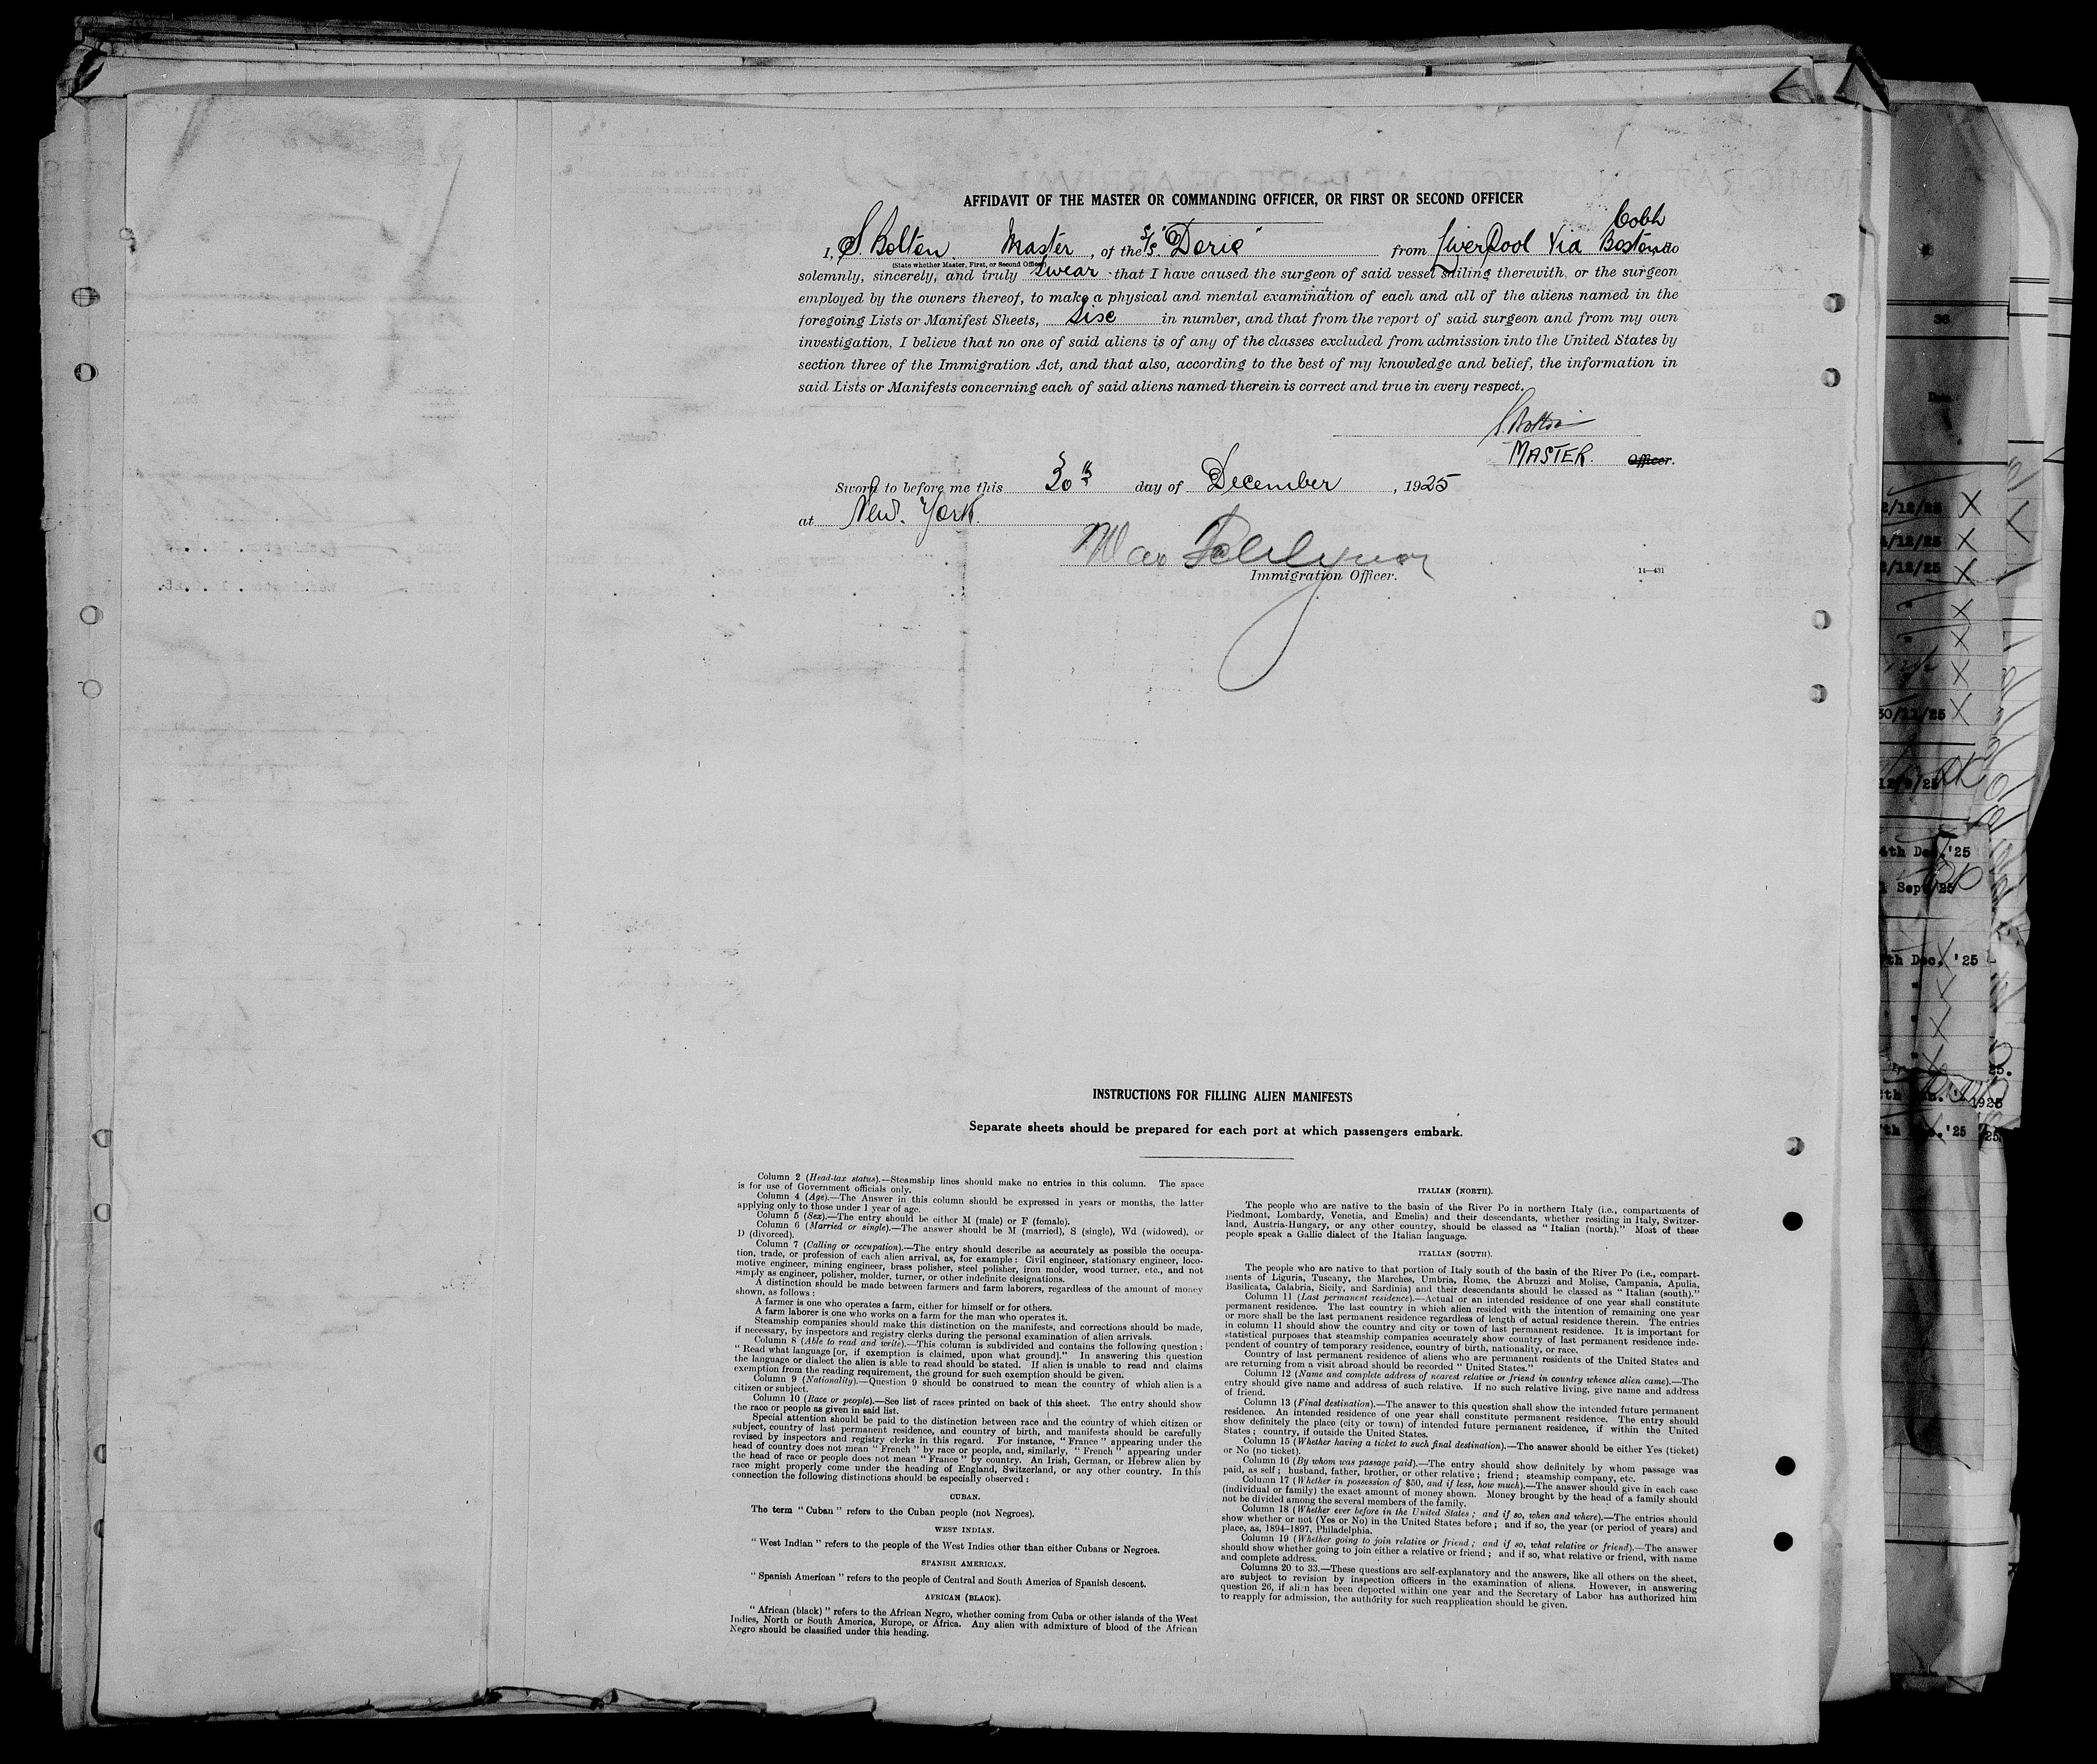 AFFIDAVIT OF THE MASTER OR COMMANDING OFFICER, OR FIRST OR SECOND OFFICER
Cobh
I, S. Bolton. Master, of the S/S. "Doric" from Liverpool Via Boston, do
(State whether Master, First, or Second Officer)
solemnly, sincerely, and truly swear that I have caused the surgeon of said vessel sailing therewith, or the surgeon
employed by the owners thereof, to make a physical and mental examination of each and all of the aliens named in the
foregoing Lists or Manifest Sheets, in number, and that from the report of said surgeon and from my own
investigation, I believe that no one of said aliens is of any of the classes excluded from admission into the United States by
section three of the Immigration Act, and that also, according to the best of my knowledge and belief, the information in
said Lists or Manifests concerning each of said aliens named therein is correct and true in every respect.
S. Bolton
MASTER. Officer.
Sworn to before me this day of December, 1925
at New. York.
Max
Immigration Officer.
14—431
INSTRUCTIONS FOR FILLING ALIEN MANIFESTS
Separate sheets should be prepared for each port at which passengers embark.
Column 2 (Head-tax status).—Steamship lines should make no entries in this column. The space
is for use of Government officials only.
Column 4 (Age).—The Answer in this column should be expressed in years or months, the latter
applying only to those under 1 year of age.
Column 5 (Sex).—The entry should be either M (male) or F (female).
Column 6 (Married or single).—The answer should be M (married), S (single), Wd (widowed), or
D (divorced).
Column 7 (Calling or occupation).—The entry should describe as accurately as possible the occupa-
tion, trade, or profession of each alien arrival, as, for example: Civil engineer, stationary engineer, loco-
motive engineer, mining engineer, brass polisher, steel polisher, iron molder, wood turner, etc., and not
simply as engineer, polisher, molder, turner, or other indefinite designations.
A distinction should be made between farmers and farm laborers, regardless of the amount of money
shown, as follows:
A farmer is one who operates a farm, either for himself or for others.
A farm laborer is one who works on a farm for the man who operates it.
Steamship companies should make this distinction on the manifests, and corrections should be made,
if necessary, by inspectors and registry clerks during the personal examination of alien arrivals.
Column 8 (Able to read and write).—This column is subdivided and contains the following question:
"Read what language [or, if exemption is claimed, upon what ground]." In answering this question
the language or dialect the alien is able to read should be stated. If alien is unable to read and claims
exemption from the reading requirement, the ground for such exemption should be given.
Column 9 (Nationality).—Question 9 should be construed to mean the country of which alien is a
citizen or subject.
Column 10 (Race or people).—See list of races printed on back of this sheet. The entry should show
the race or people as given in said list.
Special attention should be paid to the distinction between race and the country of which citizen or
subject, country of last permanent residence, and country of birth, and manifests should be carefully
revised by inspectors and registry clerks in this regard. For instance, "France" appearing under the
head of country does not mean "French" by race or people, and, similarly, "French" appearing under
the head of race or people does not mean "France" by country. An Irish, German, or Hebrew alien by
race might properly come under the heading of England, Switzerland, or any other country. In this
connection the following distinctions should be especially observed:
CUBAN.
The term "Cuban" refers to the Cuban people (not Negroes).
WEST INDIAN.
"West Indian" refers to the people of the West Indies other than either Cubans or Negroes.
SPANISH AMERICAN.
"Spanish American" refers to the people of Central and South America of Spanish descent.
AFRICAN (BLACK).
"African (black)" refers to the African Negro, whether coming from Cuba or other islands of the West
Indies, North or South America, Europe, or Africa. Any alien with admixture of blood of the African
Negro should be classified under this heading.
ITALIAN (NORTH).
The people who are native to the basin of the River Po in northern Italy (i.e., compartments of
Piedmont, Lombardy, Venetia, and Emelia) and their descendants, whether residing in Italy, Switzer-
land, Austria-Hungary, or any other country, should be classed as "Italian (north)." Most of these
people speak a Gallic dialect of the Italian language.
ITALIAN (SOUTH).
The people who are native to that portion of Italy south of the basin of the River Po (i.e., compart-
ments of Liguria, Tuscany, the Marches, Umbria, Rome, the Abruzzi and Molise, Campania, Apulia,
Basilicata, Calabria, Sicily, and Sardinia) and their descendants should be classed as "Italian (south)."
Column 11 (Last permanent residence).—Actual or an intended residence of one year shall constitute
permanent residence. The last country in which alien resided with the intention of remaining one year
or more shall be the last permanent residence regardless of length of actual residence therein. The entries
in column 11 should show the country and city or town of last permanent residence. It is important for
statistical purposes that steamship companies accurately show country of last permanent residence inde-
pendent of country of temporary residence, country of birth, nationality, or race.
Country of last permanent residence of aliens who are permanent residents of the United States and
are returning from a visit abroad should be recorded "United States."
Column 12 (Name and complete address of nearest relative or friend in country whence alien came).—The
entry should give name and address of such relative. If no such relative living, give name and address
of friend.
Column 13 (Final destination).—The answer to this question shall show the intended future permanent
residence. An intended residence of one year shall constitute permanent residence. The entry should
show definitely the place (city or town) of intended future permanent residence, if within the United
States; country, if outside the United States.
Column 15 (Whether having a ticket to such final destination).—The answer should be either Yes (ticket)
or No (no ticket).
Column 16 (By whom was passage paid).—The entry should show definitely by whom passage was
paid, as self; husband, father, brother, or other relative; friend; steamship company, etc.
Column 17 (Whether in possession of $50, and if less, how much).—The answer should give in each case
(individual or family) the exact amount of money shown. Money brought by the head of a family should
not be divided among the several members of the family.
Column 18 (Whether ever before in the United States; and if so, when and where).—The entries should
show whether or not (Yes or No) in the United States before; and if so, the year (or period of years) and
place, as, 1894–1897, Philadelphia.
Column 19 (Whether going to join relative or friend; and if so, what relative or friend).—The answer
should show whether going to join either a relative or friend; and if so, what relative or friend, with name
and complete address.
Columns 20 to 33.—These questions are self-explanatory and the answers, like all others on the sheet,
are subject to revision by inspection officers in the examination of aliens. However, in answering
question 26, if alien has been deported within one year and the Secretary of Labor has authorized him
to reapply for admission, the authority for such reapplication should be given.
36
Date
2/12/25
30/11/25
4th Dec.'25
Sept '25
7th Dec. '25
1925